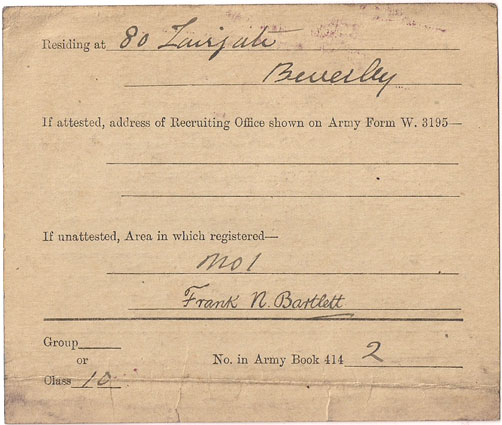 Residing at 80 Lairgate
Beverley
If attested, address of Recruiting Office shown on Army Form W. 3195—
If unattested, Area in which registered—
No 1
Frank N. Bartlett
Group
or
Class 10
No. in Army Book 414 2